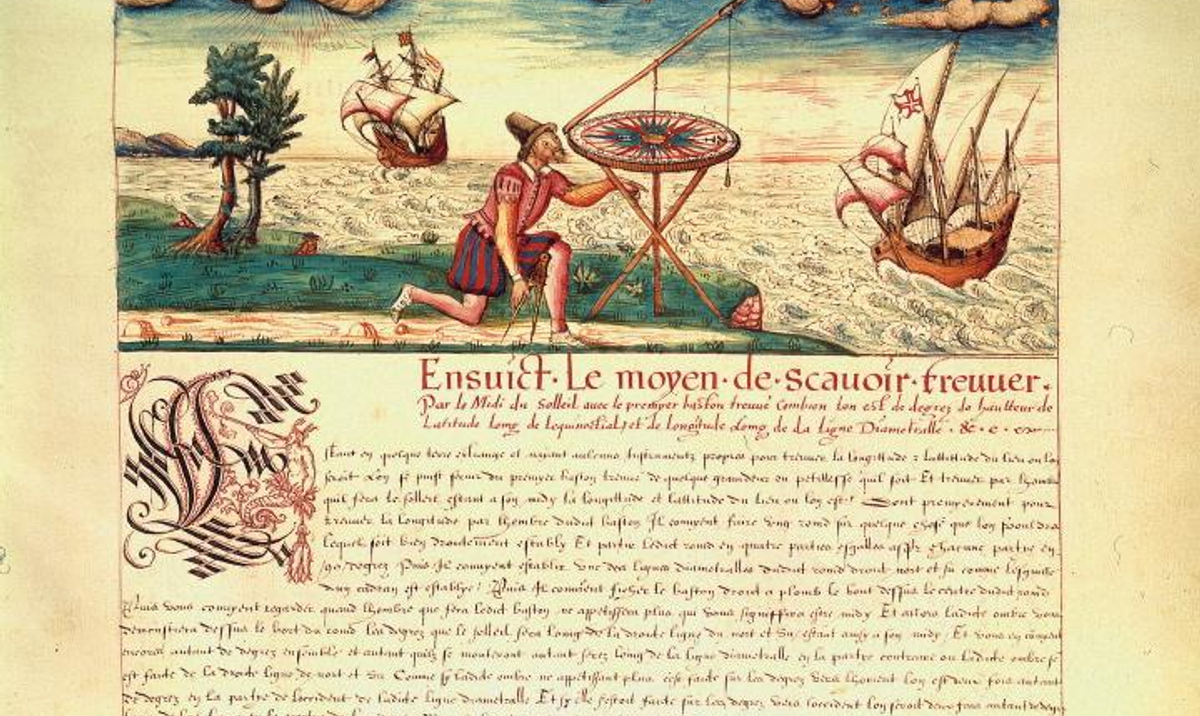 Ensuict · Le moyen · de · scauoir · treuuer ·
Par le Midi du Solleil auec le premyer baston treuué Combien lon est de degrez de haulteur de
Latitude Loing de Lequinoctial, et de longitude Loing de La Ligne Diametralle · &c · c ·
Estant en quelque terre estrange et nayant aulcuns Instrumentz propres pour treuuer la longittude & lattitude du lieu ou lon
seroit Lon se peult seruir du premyer baston treuué de quelque grandeur ou petitesse quil soit Et treuuer par lhombre
quil fera le solleil estant a son midy la longittude et lattitude du lieu ou lon est / Dont premyerement pour
treuuer la Longitude par lhombre dudit baston Il conuyent faire vng rond sur quelque chose que lon vouldra
lequel soit bien droictement estably Et partir ledict rond en quatre parties esgalles assçr chacune partie en
90 degrez Puis Il conuyent establir vne des lignes diametralles dudict rond droict nort et su comme lesguille
dung cadran est establye / Puis Il conuient ficher le baston droict a plomb le bout dessus le centre dudit rond
Puis vous conuyent regarder quand lhombre que fera ledict baston ne appetissera plus qui vous signiffira estre midy Et alors ladicte ombre vous
demonstrera dessus le bort du rond les degrez que le solleil sera loing de la droicte ligne du nort et su, estant ainsy a son midy / Et vous en conuient
encores autant de degrez ensemble et autant quilz se monteront autant serez loing de la ligne diametralle en la partie contraire ou ladicte ombre se
est faicte de la droicte ligne de nort et su Comme sy ladicte ombre ne appetissant plus cest faicte sur les degrez vers lhorient lon est deux fois autant
de degrez en la partie de loccident de ladicte ligne diametralle Et sy elle sestoit faicte sur les degrez vers loccident lon seroit deux fois autant de degrez